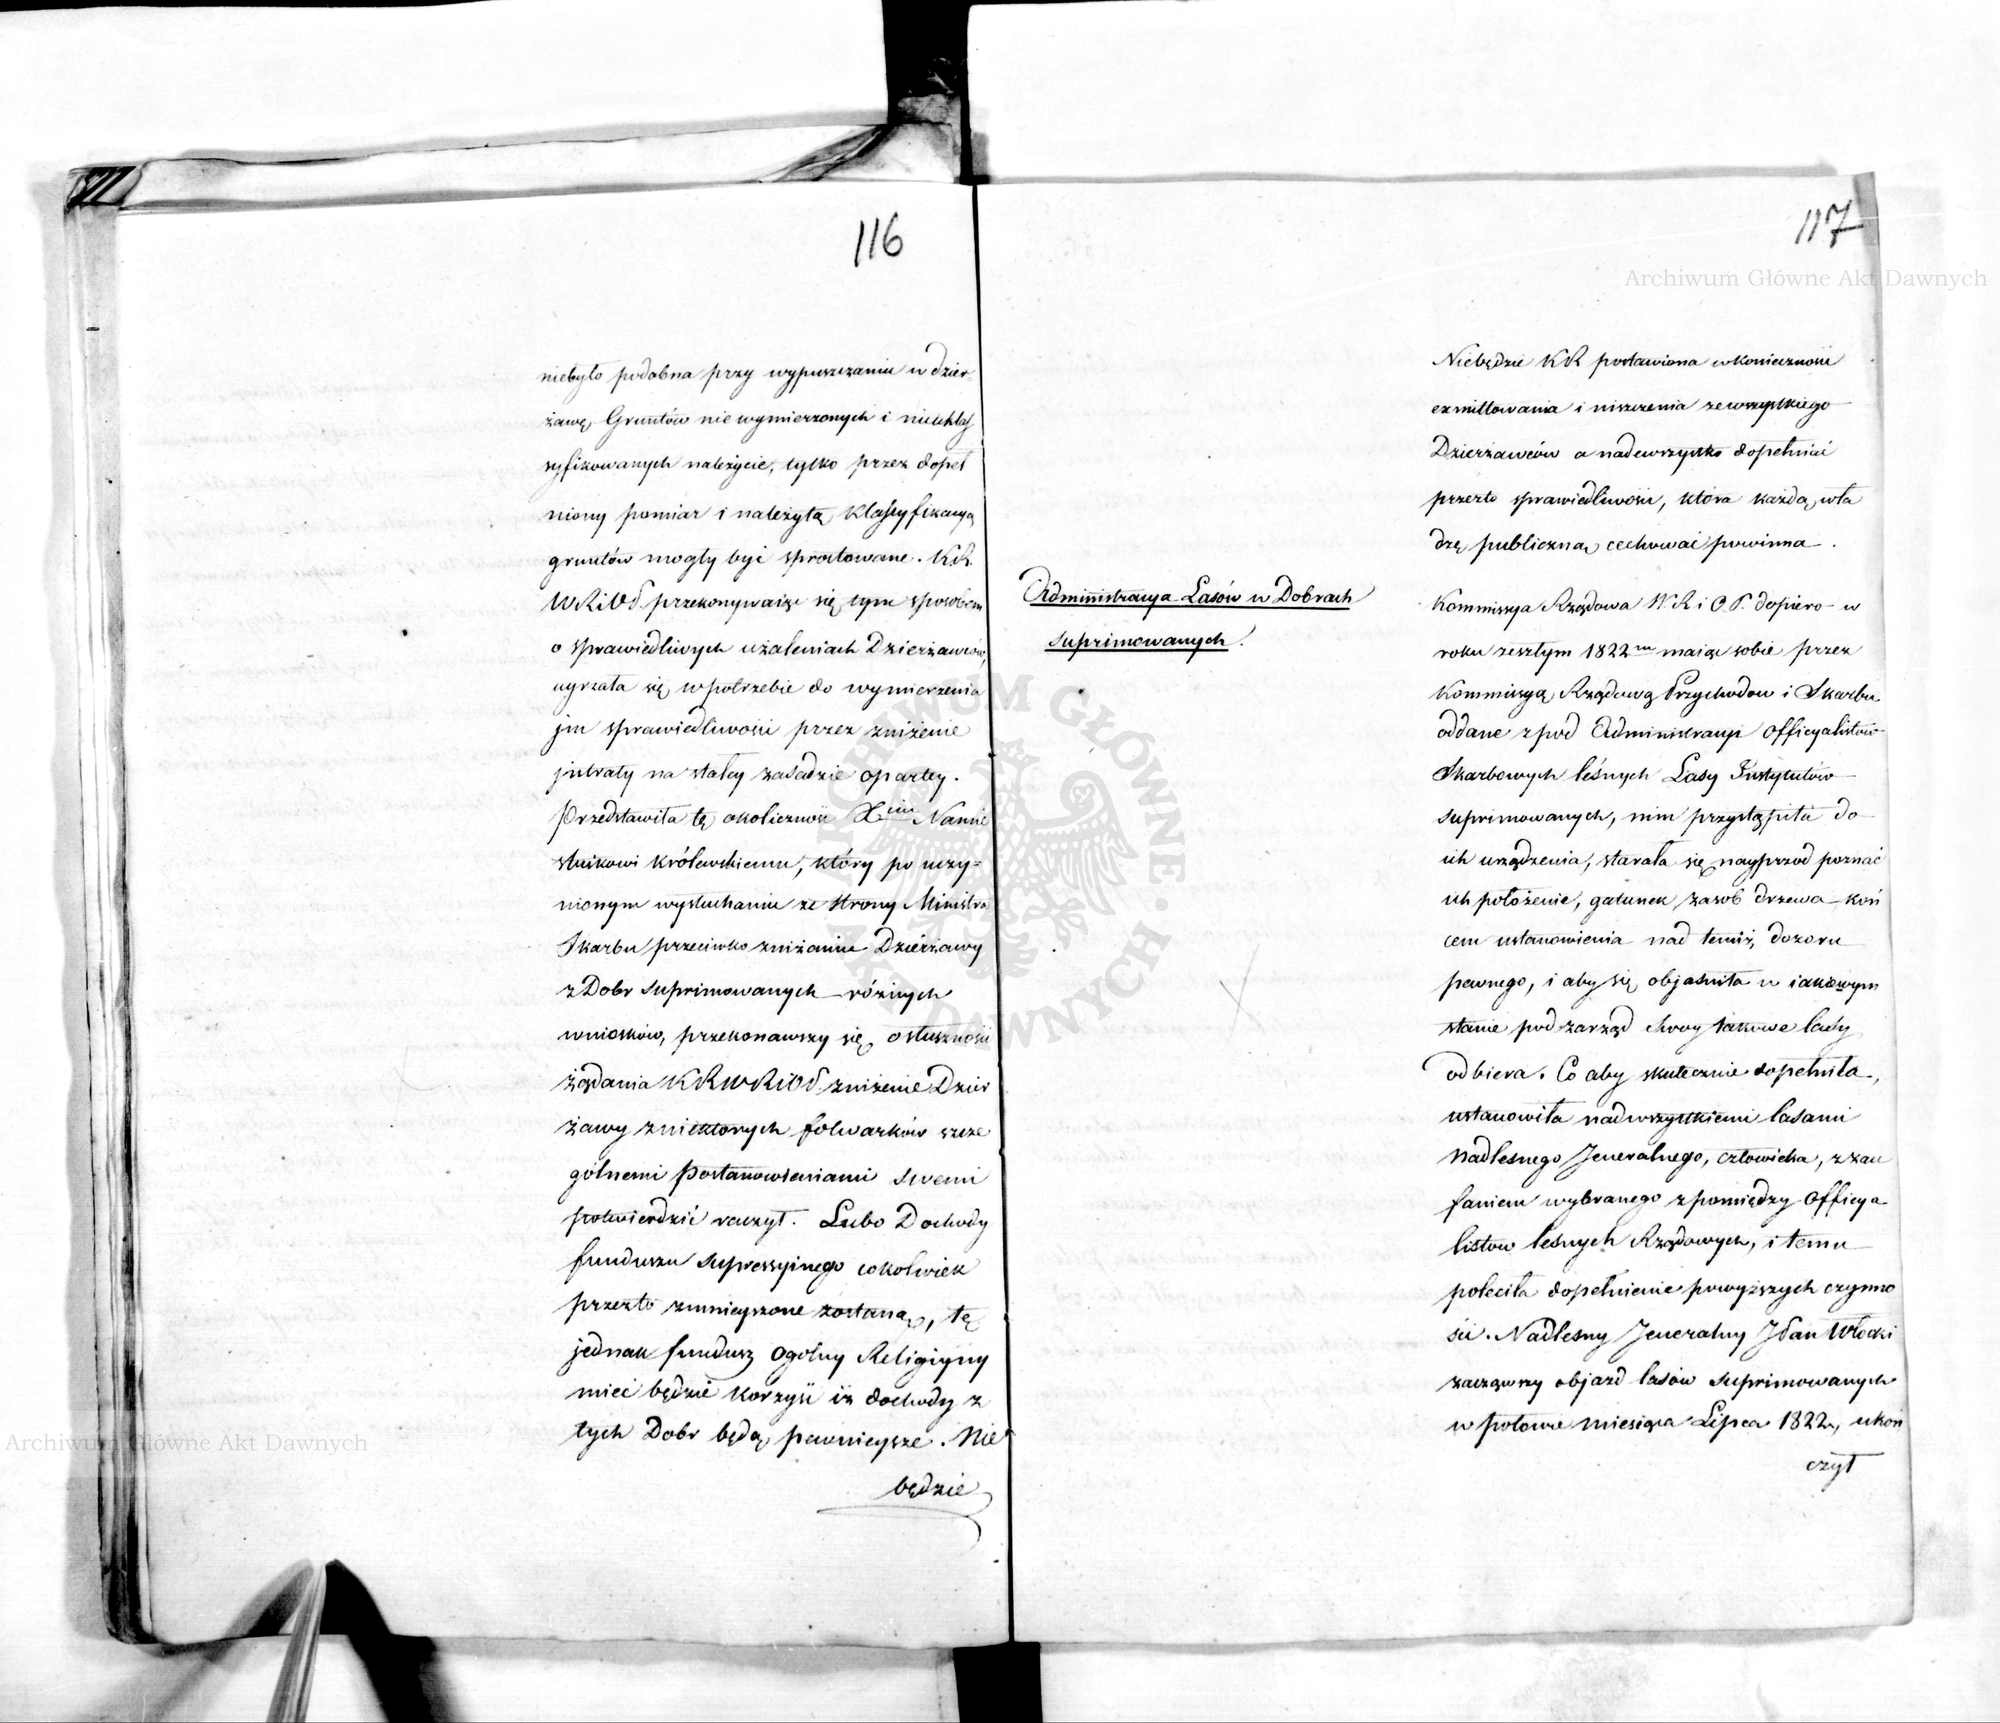 116
niebyło podobna przy wypuszczaniu w dzier-
żawę Gruntów nie wymierzonych i nieuklas
syfikowanych należycie, tylko przez dopeł
niony pomiar i należytą klassyfikacyą
gruntów mogły być sprostowane. KR.
WRiOP. przekonywaiąc się tym sposobem
o sprawiedliwych użaleniach Dzierżawców,
uyrzała się w potrzebie do wymierzenia
jm sprawiedliwości przez zniżenie
jntraty na stałey zasadzie opartey.
Przedstawiła tę okoliczność Xciu Namie
stnikowi Królewskiemu, który po uczy=
nionym wysłuchaniu ze strony Ministra
Skarbu przeciwko zniżaniu Dzierżawy
z Dobr suprimowanych różnych
wniosków, przekonawszy się o słuszności
żądania KRWRiOP. zniżenie Dzier
żawy z niektorych folwarków szcze
gólnemi Postanowieniami swemi
potwierdzić raczył. Lubo Dochody
funduszu supressyinego cokolwiek
przezto zmnieyszone zostaną, tę
jednak fundusz Ogólny Religiyny
mieć będzie korzyść iż dochody z
tych Dobr będą pewnieysze. Nie
będzie
117
Niebędzie KR postawiona w konieczności
exmittowania i niszczenia ze wszystkiego
Dzierżawców a nadewszystko dopełniać
przezto sprawiedliwości, która każdą wła
dzę publiczną cechować powinna.
Administracya Lasów w Dobrach
suprimowanych.
Kommissya Rządowa W.R i O.P. dopiero w
roku zeszłym 1822m maiąc sobie przez
Kommissyą Rządową Przychodow i Skarbu
oddane z pod Administracyi officyalistów
Skarbowych leśnych Lasy Instytutów
suprimowanych, nim przystąpiła do
ich urządzenia, starała się nayprzód poznać
ich położenie, gatunek zasob drzewa koń
cem ustanowienia nad temiż dozoru
pewnego, i aby się objaśniła w iakowym
stanie pod zarząd swoy takowe lasy
odbiera. Co aby skutecznie dopełniła,
ustanowiła nad wszystkiemi lasami
Nadleśnego Jeneralnego, człowieka, z zau
faniem wybranego z pomiędzy officya
listow leśnych Rządowych, i temu
poleciła dopełnienie powyższych czynno
ści. Nadleśny Jeneralny JPan Włocki
zacząwszy objazd lasów suprimowanych
w połowie miesiąca Lipca 1822, ukoń
czył
Archiwum Główne Akt Dawnych
Archiwum Główne Akt Dawnych
ARCHIWUM GŁÓWNE AKT DAWNYCH